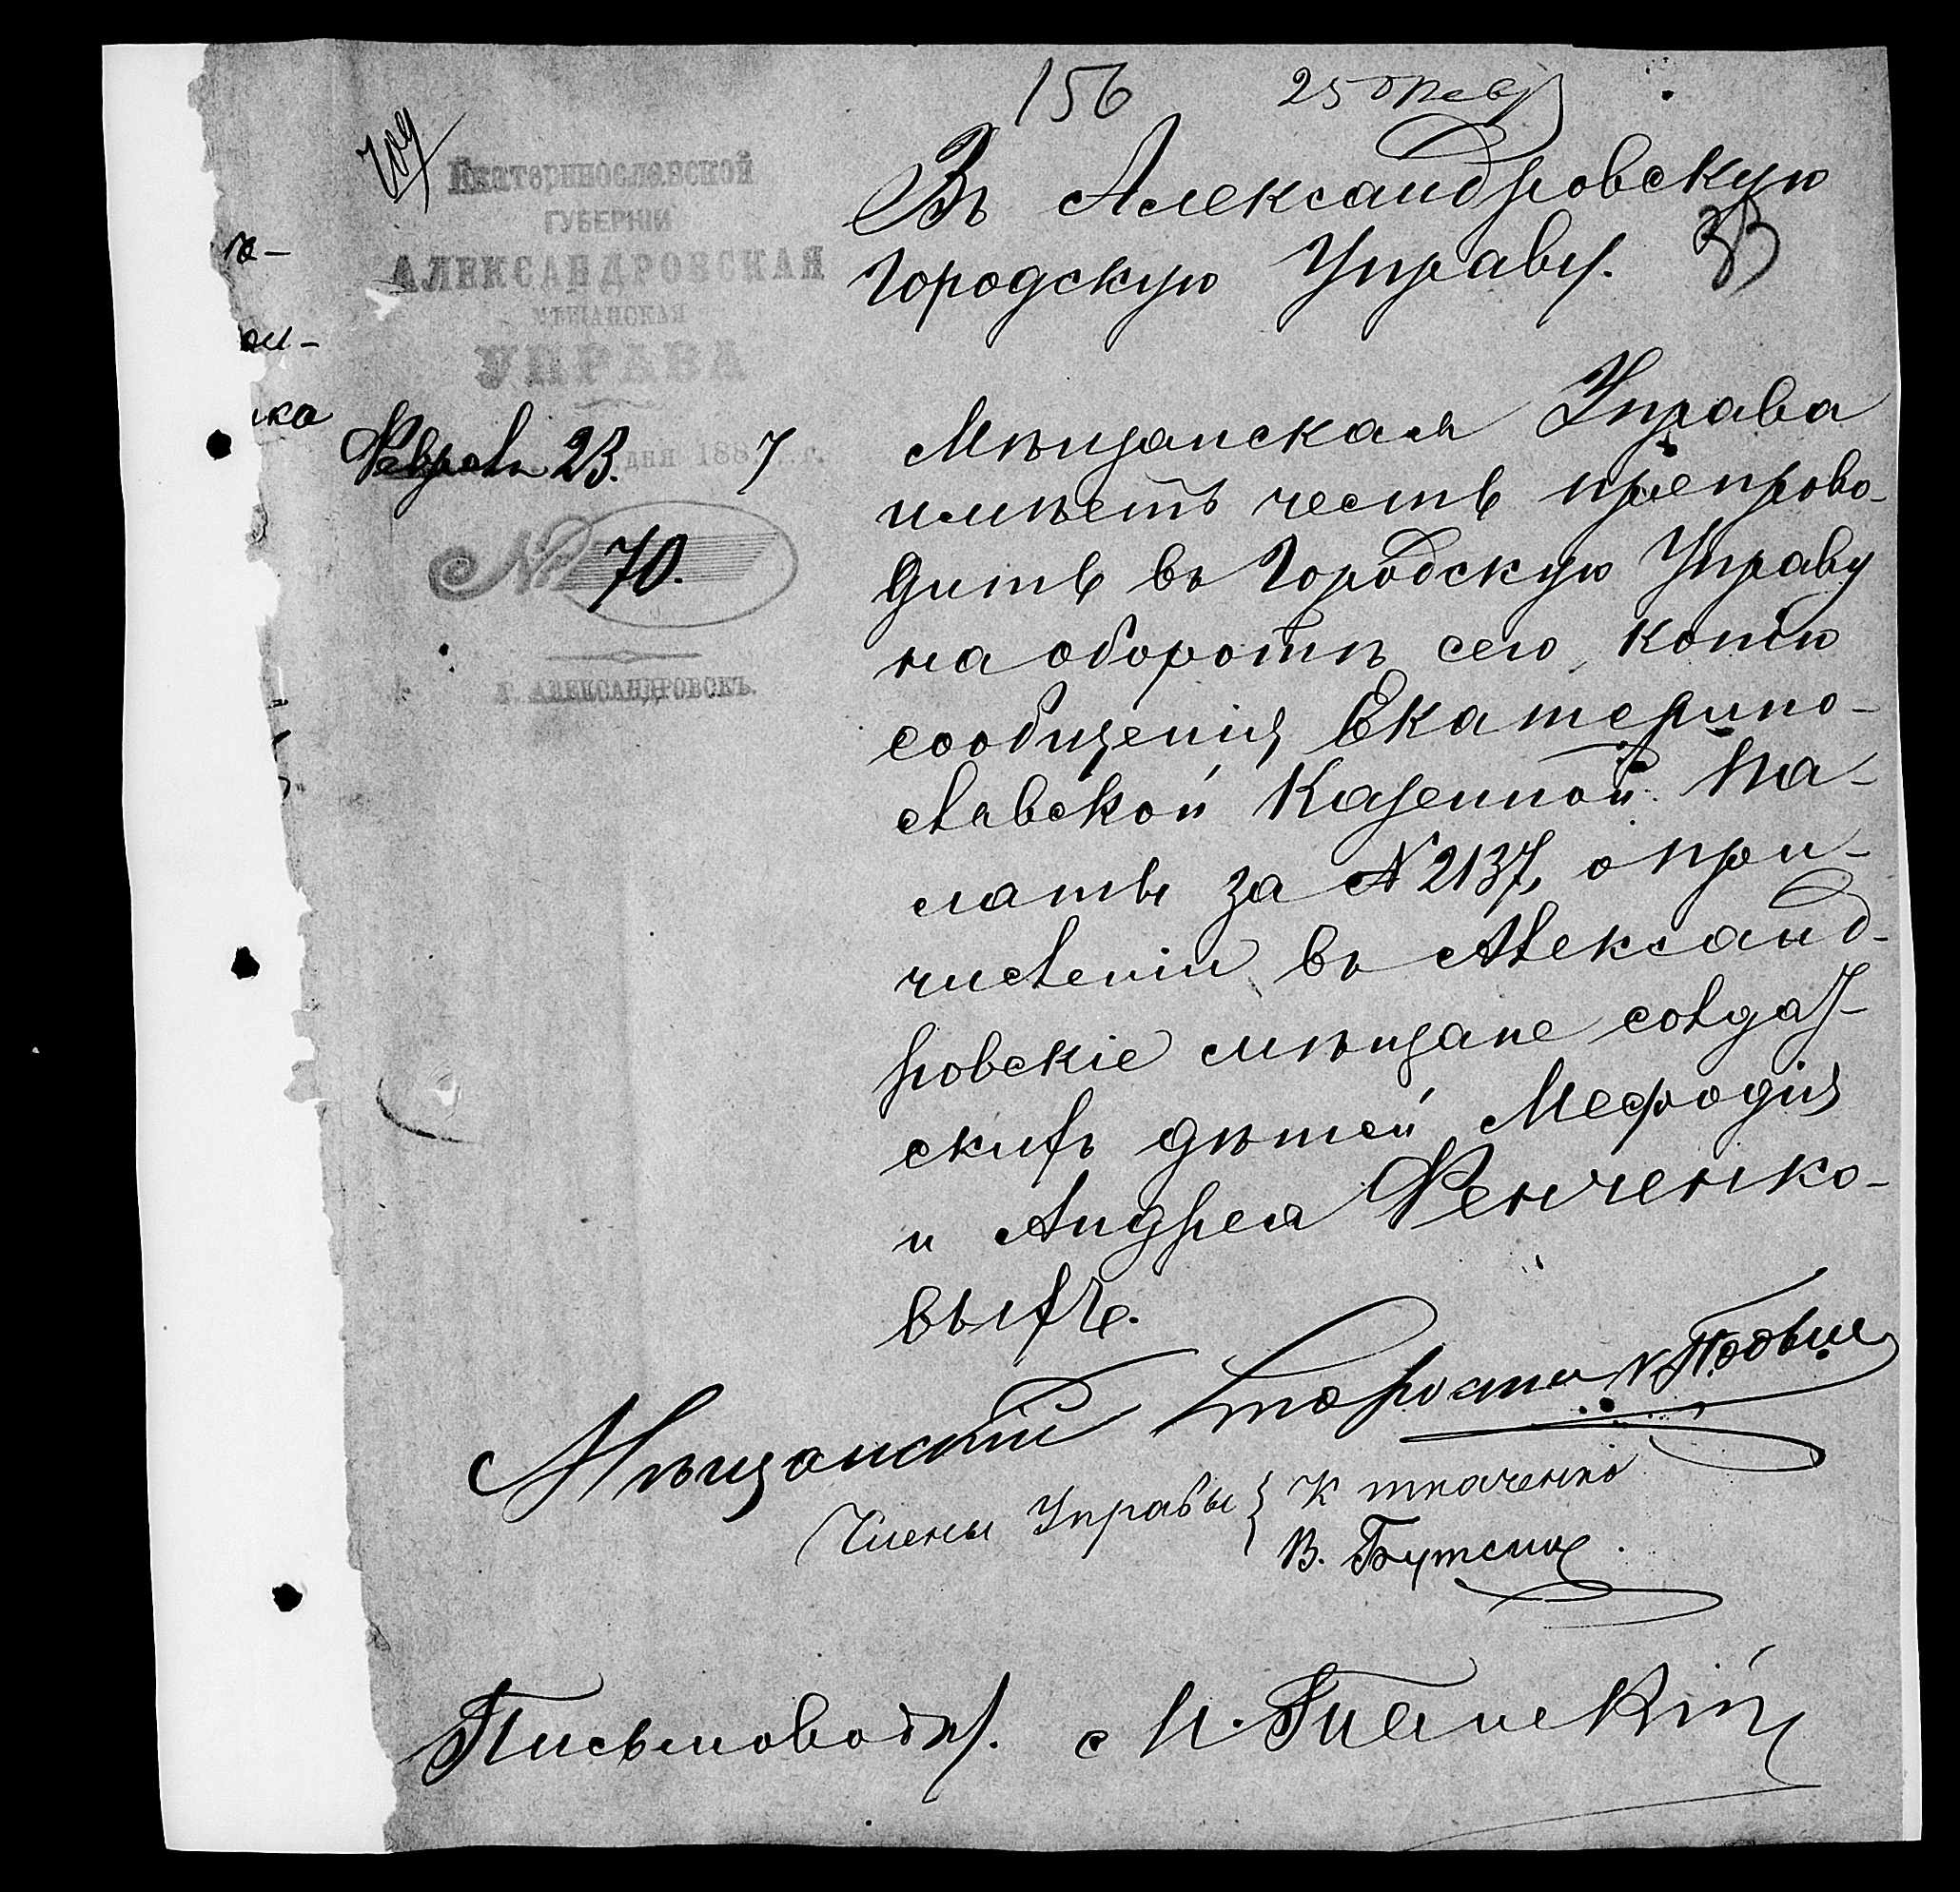 156 25 Февр
Екатеринославской
ГУБЕРНІИ
АЛЕКСАНДРОВСКАЯ
МѢЩАНСКАЯ
УПРАВА
Февраля 23. дня 1887 г.
№ 70.
г. АЛЕКСАНДРОВСКЪ.
Въ Александровскую
Городскую Управу.
33
Мѣщанская Управа
имѣетъ честь препрово-
дить въ Городскую Управу
на оборотѣ сего копію
сообщенія Екатерино-
славской Казенной Па-
латы за № 2137, о при-
численіи въ Александ-
ровскіе мѣщане солдат-
скихъ дѣтей Мефодія
и Андрея Фенченко-
выхъ.
Мѣщанскій Староста
Члены Управы { К Ткаченко
В.
Письмоводит.
го-
ко